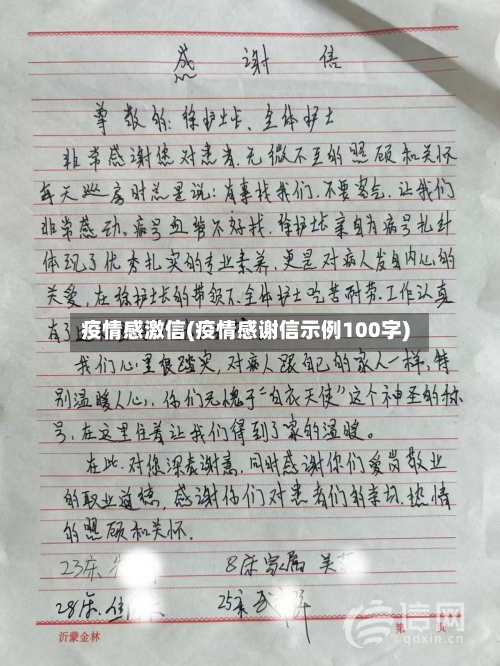 感谢信
尊敬的:徐护士长、全体护士
非常感谢您对患者无微不至的照顾和关怀
每天巡房时总是说:有事找我们.不要客气.让我们
非常感动。病号血管不好找.徐护士长亲自为病号扎针
体现了优秀扎实的专业素养.更是对病人发自内心的
关爱,在徐护士长的带领下.全体护士吃苦耐劳.工作认真
有了
疫情感激信(疫情感谢信示例100字)
我们心里很踏实,对病人跟自己的家人一样,特
别温暖人心,你们无愧于“白衣天使”这个神圣的称
号,在这里住着让我们得到了家的温暖。
在此.对您深表谢意,同时感谢你们爱岗敬业
的职业道德,感谢你们对患者们的亲切.热情
的照顾和关怀.
23床 8床家属 吴
28床. 25床
沂蒙金林 第 页
信网
qdxin.cn